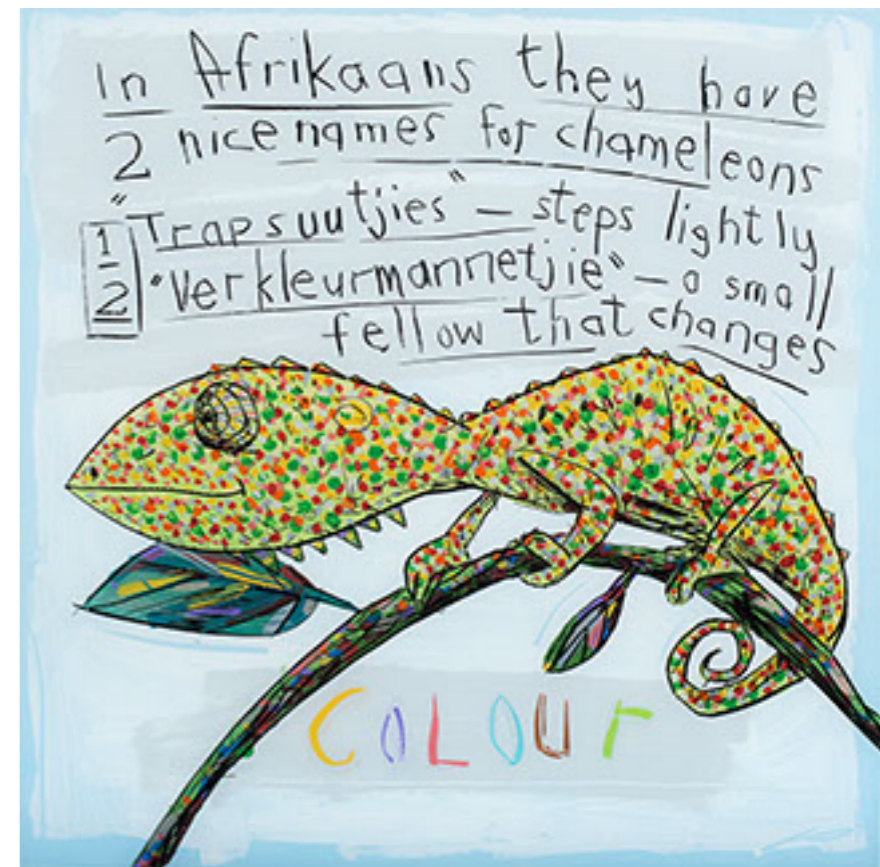 In Afrikaans they have
2 nice names for chameleons
1 "Trapsuutjies" – steps lightly
2 "Verkleurmannetjie" – a small
fellow that changes
COLOUr